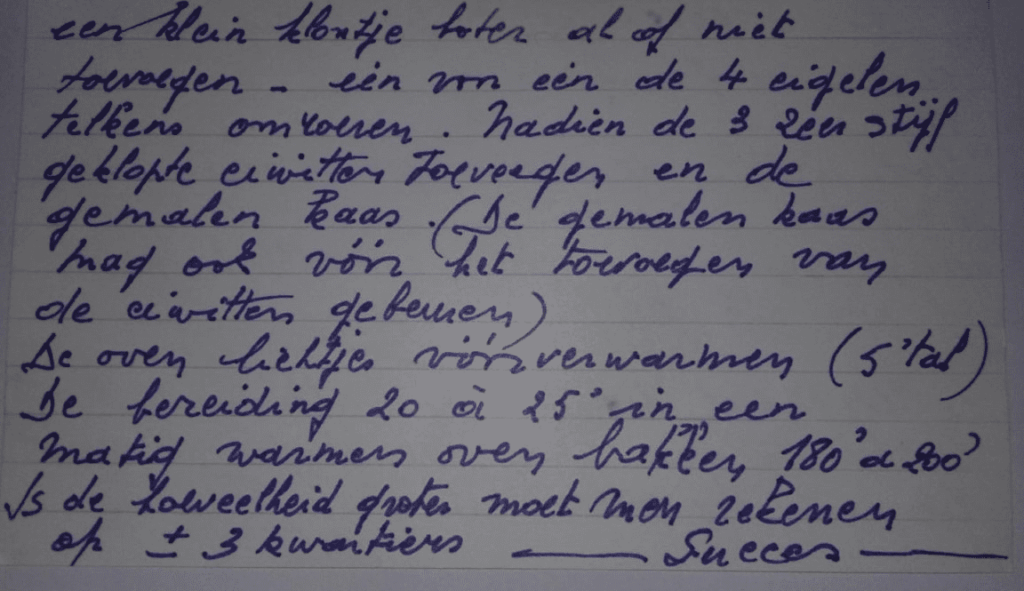 een klein klontje boter al of niet
toevoegen - één voor één de 4 eigelen
telkens omroeren. Nadien de 3 zeer stijf
geklopte eiwitten toevoegen en de
gemalen kaas. (De gemalen kaas
mag ook vóór het toevoegen van
de eiwitten gebeuren)
De oven lichtjes vóórverwarmen (5'tal)
De bereiding 20 à 25' in een
matig warmen oven bakken 180° a 200°
Is de hoeveelheid groter moet men rekenen
op ± 3 kwartiers — Succes —